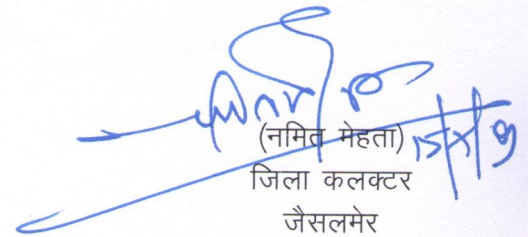 (नमित मेहता)
जिला कलक्टर
जैसलमेर